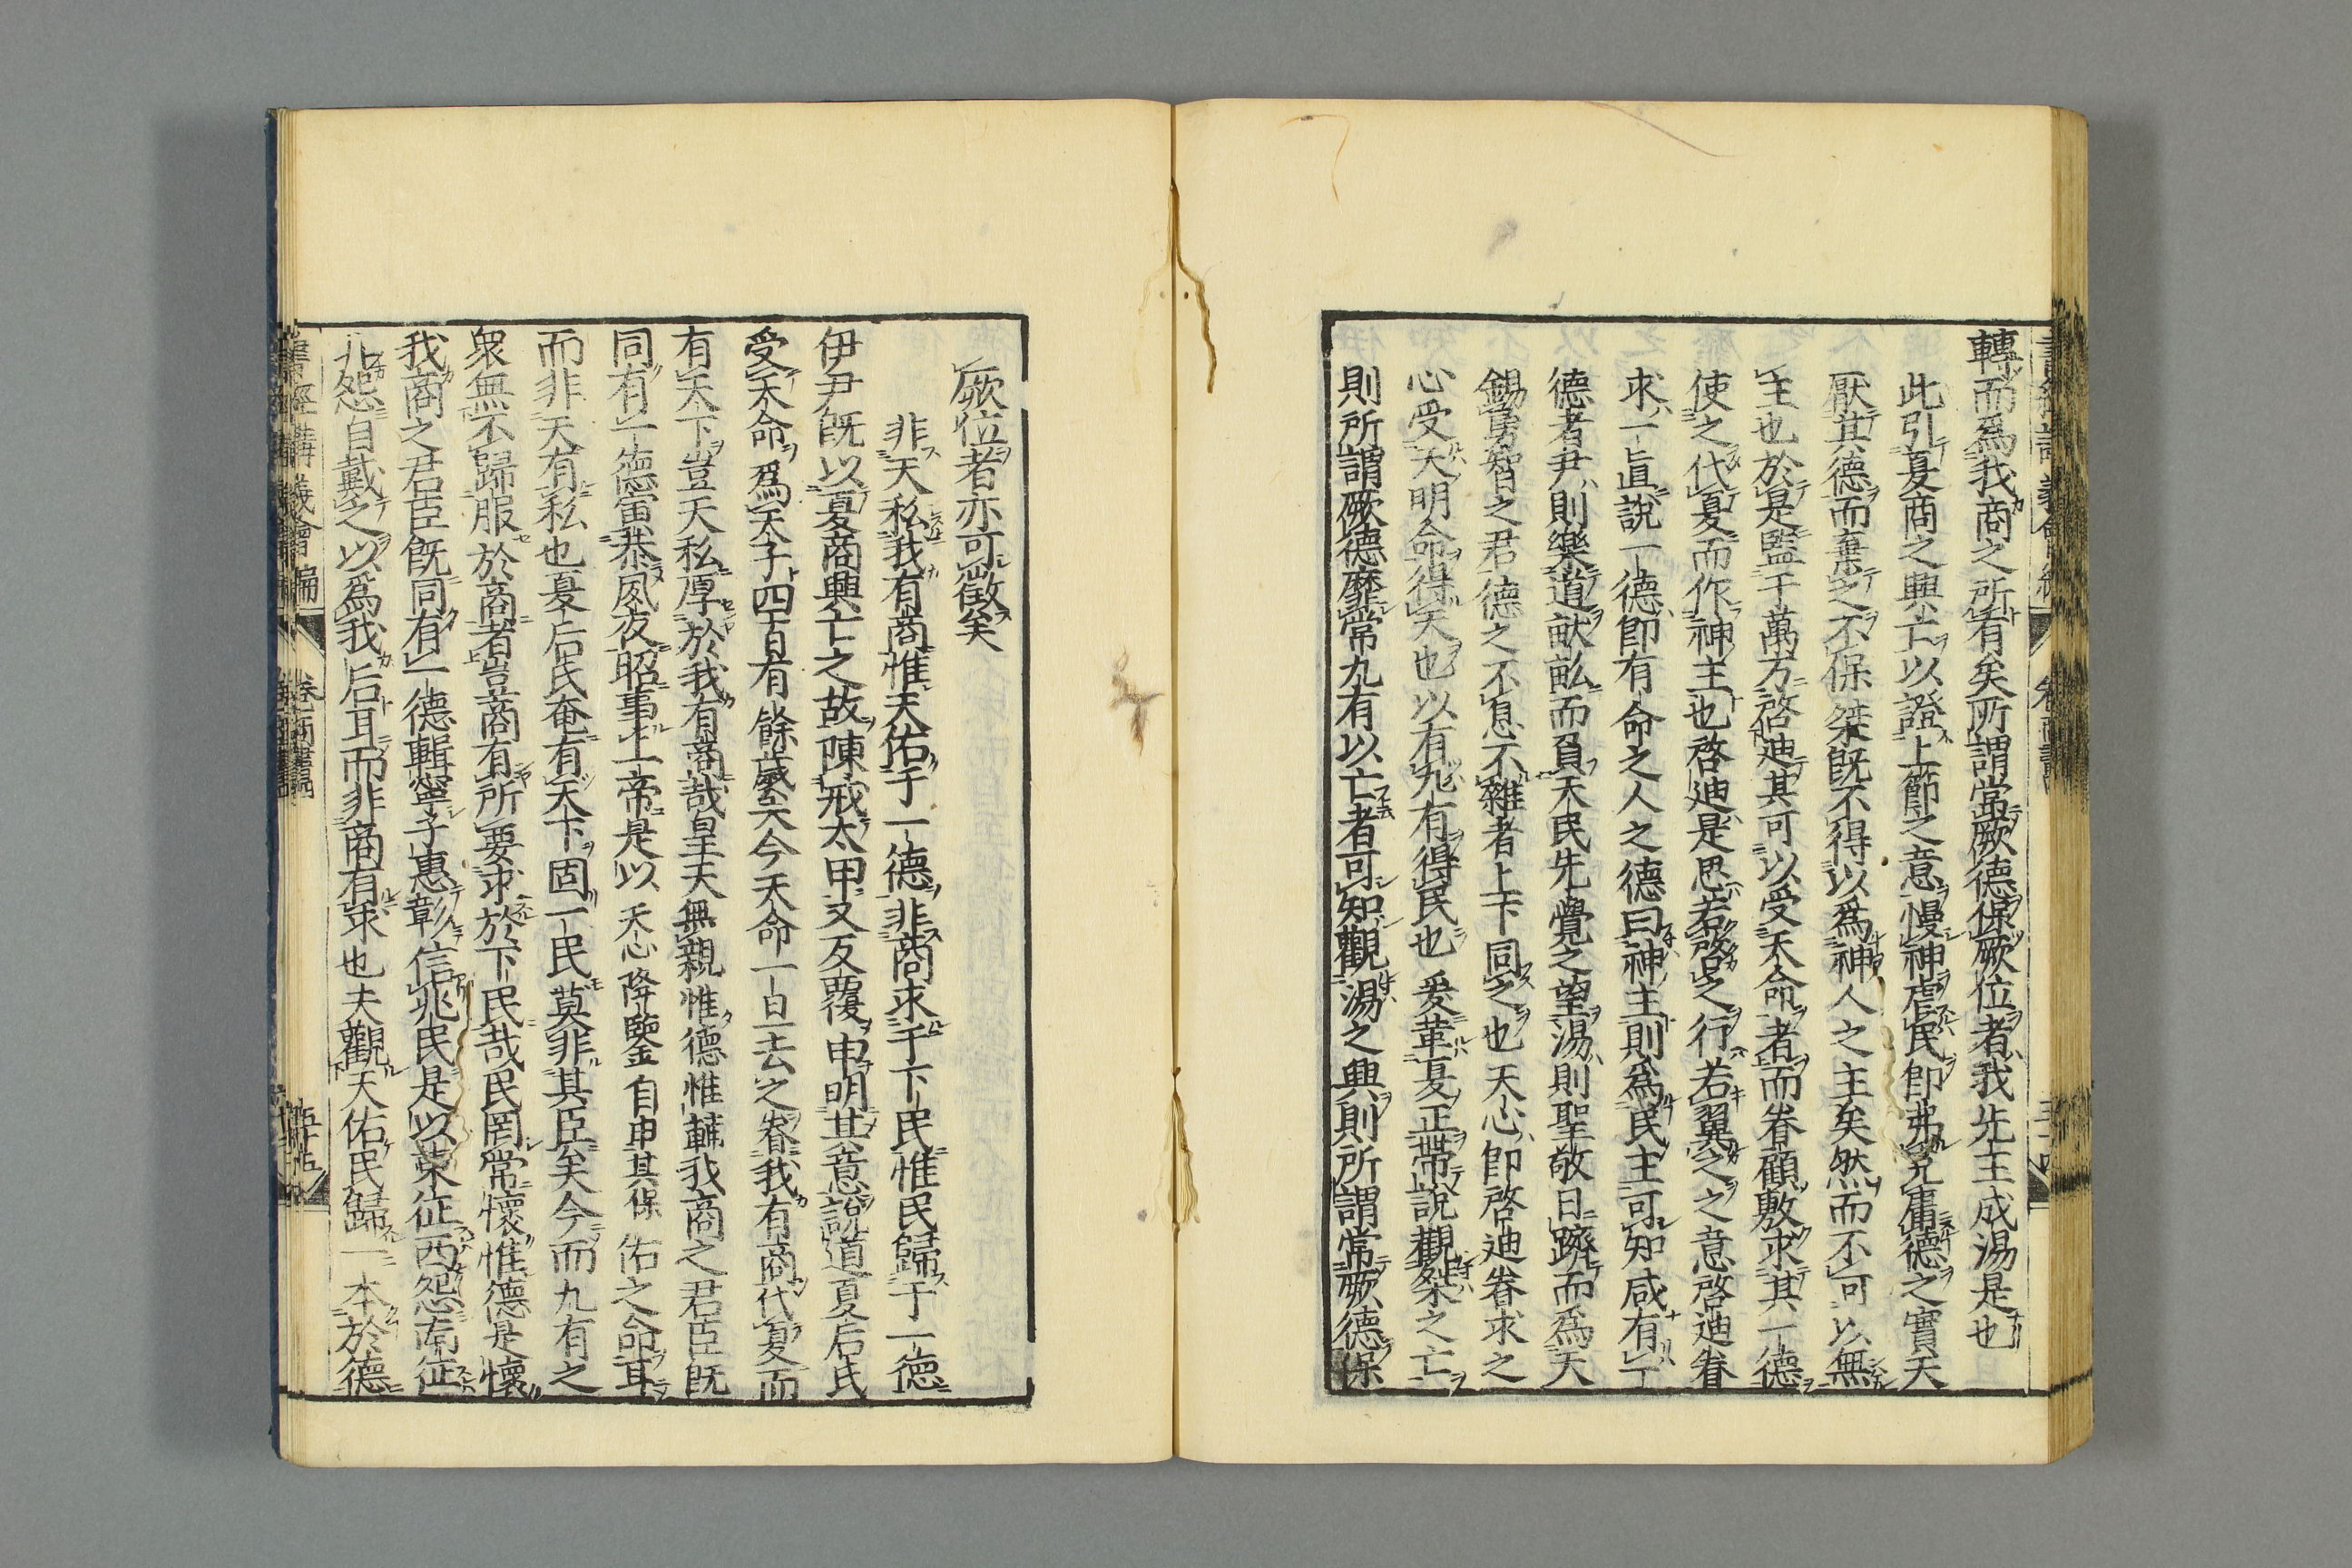 轉而爲我商之所有矣所謂常厥德保厥位者我先王成湯是也
此引夏商之興亡以證上節之意慢神虐民卽弗克庸德之實天
厭其德而棄之不保桀旣不得以爲神人之主矣然而不可以無
主也於是監于萬方啓迪其可以受天命者而眷顧敷求其一德
使之代夏而作神主也啓迪是思若啓之行若翼之之意啓迪眷
求一直說一德卽有命之人之德曰神主則爲民主可知咸有一
德者尹則樂道畎畝而負天民先覺之望湯則聖敬日躋而爲天
錫勇智之君德之不息不雜者上下同之也天心卽啓迪眷求之
心受天明命得天也以有九有得民也爰革夏正帶說觀桀之亡
則所謂厥德靡常九有以亡者可知觀湯之興則所謂常厥德保
厥位者亦可徵矣
非天私我有商惟天佑于一德非商求于下民惟民歸于一德
伊尹旣以夏商興亡之故陳戒太甲又反覆申明其意說道夏后氏
受天命爲天子四百有餘歲矣今天命一旦去之眷我有商代夏而
有天下豈天私厚於我有商哉皇天無親惟德惟輔我商之君臣旣
同有一德寅恭夙夜昭事上帝是以天心降鑒自申其保佑之命耳
而非天有私也夏后氏奄有天下固一民莫非其臣矣今而九有之
衆無不歸服於商者豈商有所要求於下民哉民罔常懷惟德是懷
我商之君臣旣同有一德輯寧子惠彰信兆民是以東征西怨南征
北怨自戴之以爲我后耳而非商有求也夫觀天佑民歸一本於德
書經講義會編 卷 商書